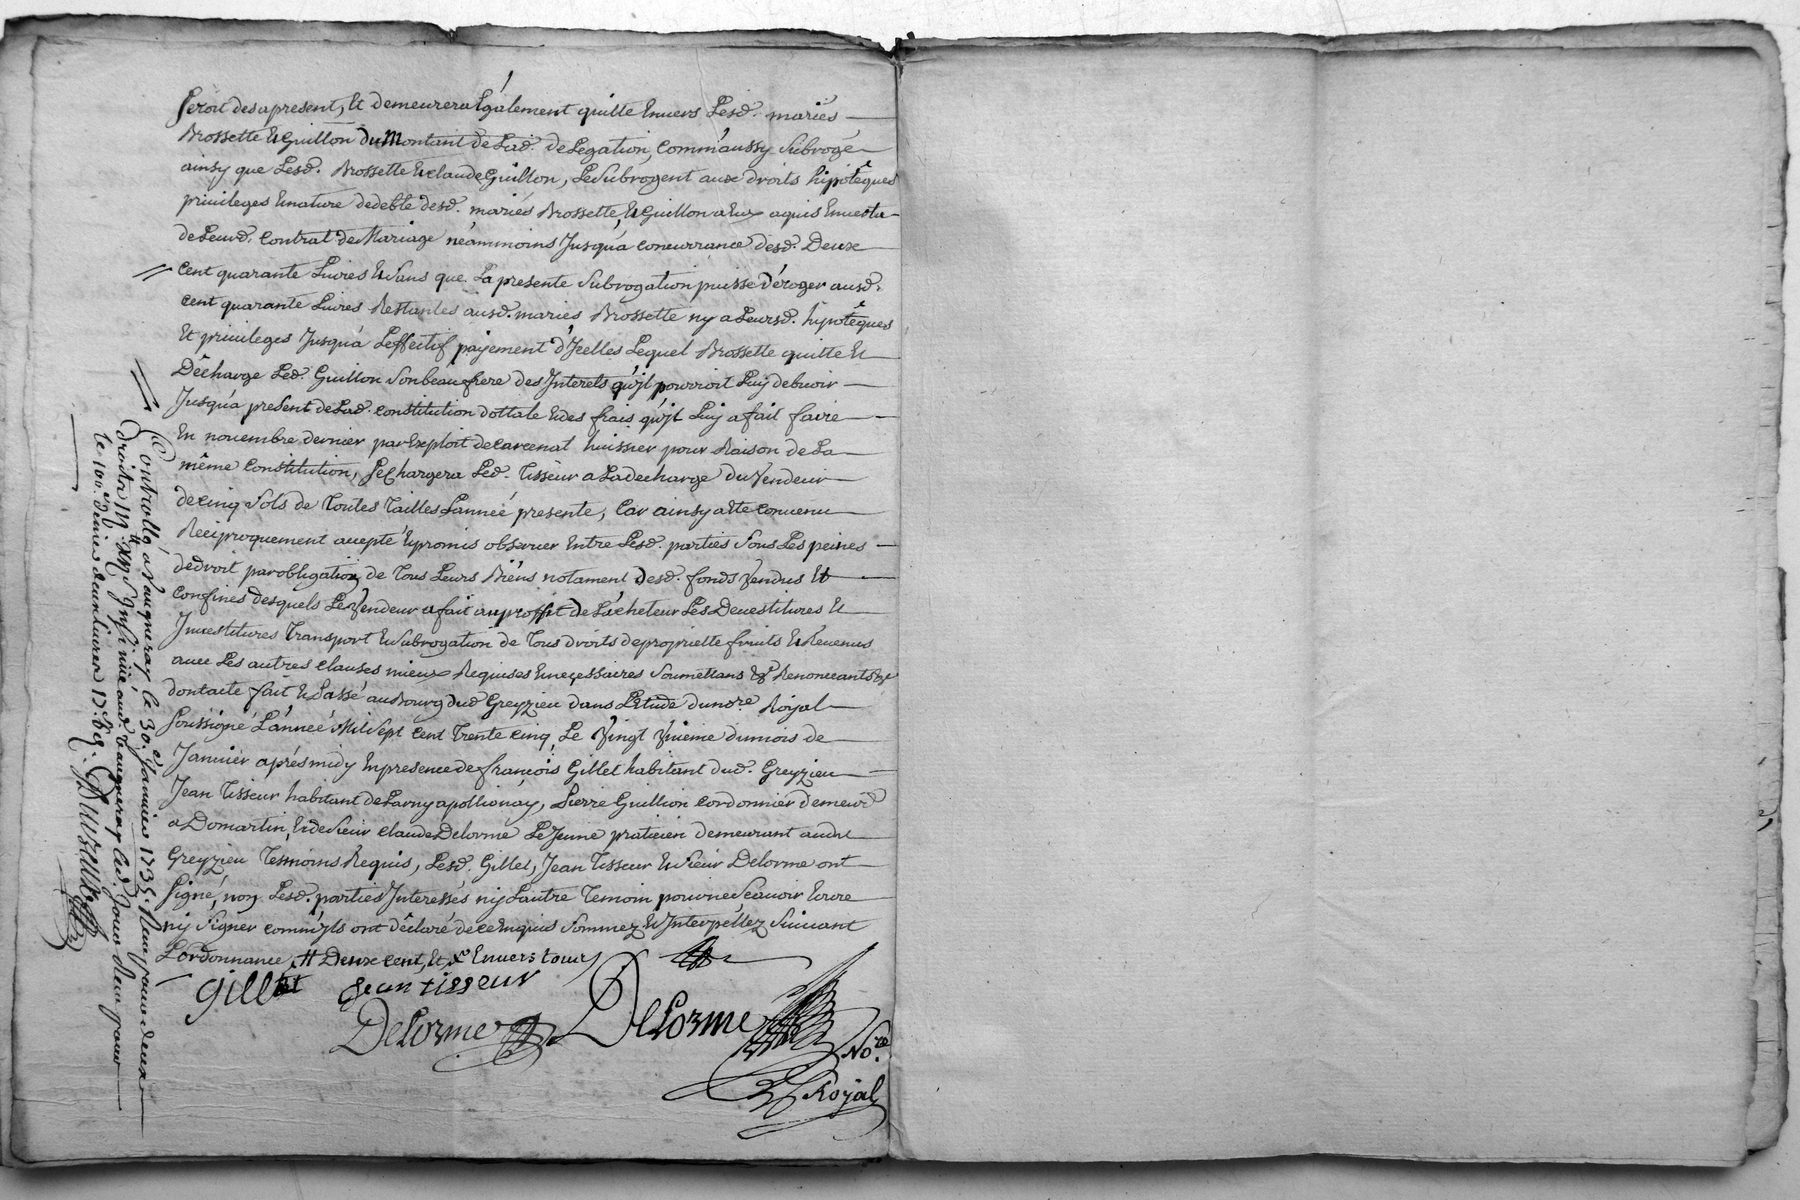 seroit desapresent, Et demeurera Egalement quitte Envers Lesd. mariés
Brossette & Guillon du Montant de Lad. delegation, comm'aussy subrogé
ainsy que Lesd. Brossette & claude Guillon, Le subrogent aux droits hipotêques
privileges & nature dedebte desd. mariés Brossette & Guillon a Eux aquis Envertu
de Leurd. Contrat de Mariage néammoins Jusqu'a concurrance desd. Deux
cent quarante Livres & sans que La presente subrogation puisse déroger ausd.
cent quarante Livres Restantes ausd. mariés Brossette ny a Leursd. hipotêques
Et privileges Jusqu'a Leffectif paÿement d'Jcelles Lequel Brossette quitte Et
Décharge Led. Guillon son beaufrere des Interets qu'jl pourroit Luy debvoir
Jusqu'a present de Lad. constitution dottale & des frais qu'jl Luy a fait faire
En novembre dernier par Exploit de carcenat huissier pour Raison de La
même constitution, se Chargera Led. Tisseur a Ladecharge du Vendeur
de cinq sols de Toutes Tailles L'anneé presente, Car ainsy a Eté convenu
Reciproquement accepté & promis observer Entre Lesd. parties sous Les peines
dedroit par obligation de Tous Leurs Biens notament desd. fonds Vendus Et
confinés desquels Le Vendeur a fait au proffit de L'acheteur Les Devestitures &
Jnvestitures Transport & subrogation de Tous droits de proprietté fruits & Revenus
avec Les autres clauses mieux Requises & neçessaires soumettans & Renonceants &c
dont acte fait & Passé au Bourg dud Greyzieu dans L'Etude du no.re Roÿal
soussigné L'anneé Mil sept cent Trente cinq, Le Vingt Vnieme du mois de
Janvier aprés midy En presence de francois Gillet habitant dud. Greyzieu
Jean Tisseur habitant de Larny apollionay, Pierre Guillion cordonnier demeur.t
a Domartin, & de sieur claude Delorme Le Jeune praticien demeurant audit
Greyzieu Temoins Requis, Lesd. Gillet, Jean Tisseur & sieur Delorme ont
signé, non Lesd. parties Jnteressés ny L'autre Temoin pour ne sçavoir Ecrire
ny signer comm'jls ont déclaré de ce Enquis sommez & Interpéllez suivant
L'ordonnance, # Deux cent, Et, x Envers tous
gillet Jean tisseur
Delorme Delorme
No.re
Royal
Controllé a Vaugneray le 30.e Janvier 1735. Reçu pour deux
droits
le 100.e denier